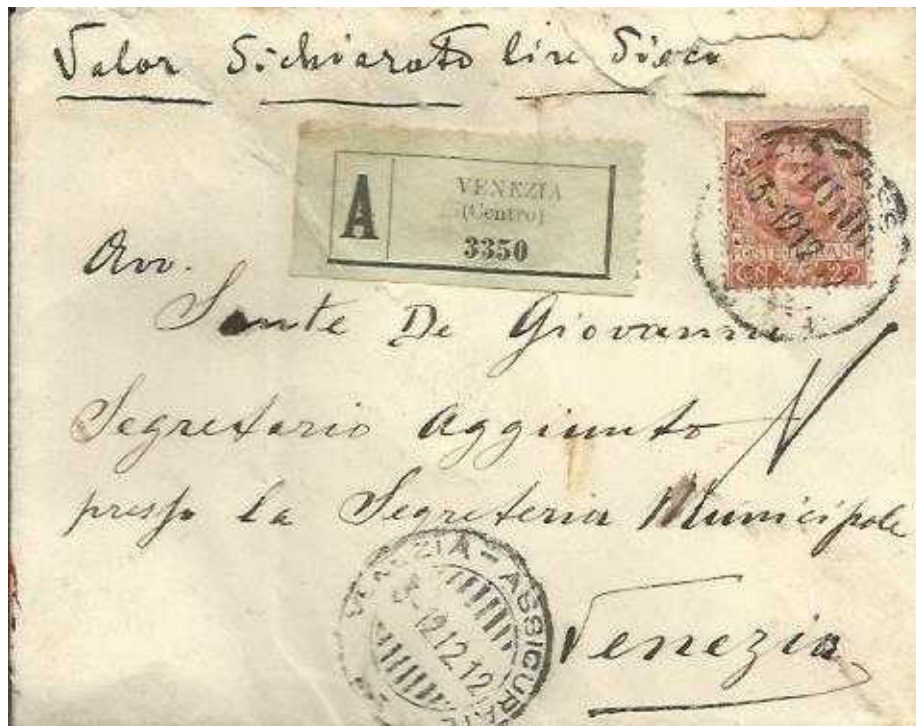 Valor Dichiarato lire Dieci
A
VENEZIA
(Centro)
3350
-12 12
POSTE ITALIANE
Avv.
Sante De Giovanni
Segretario Aggiunto
presso la Segreteria Municipale
VENEZIA - ASSICURATE
-12 12 12
Venezia